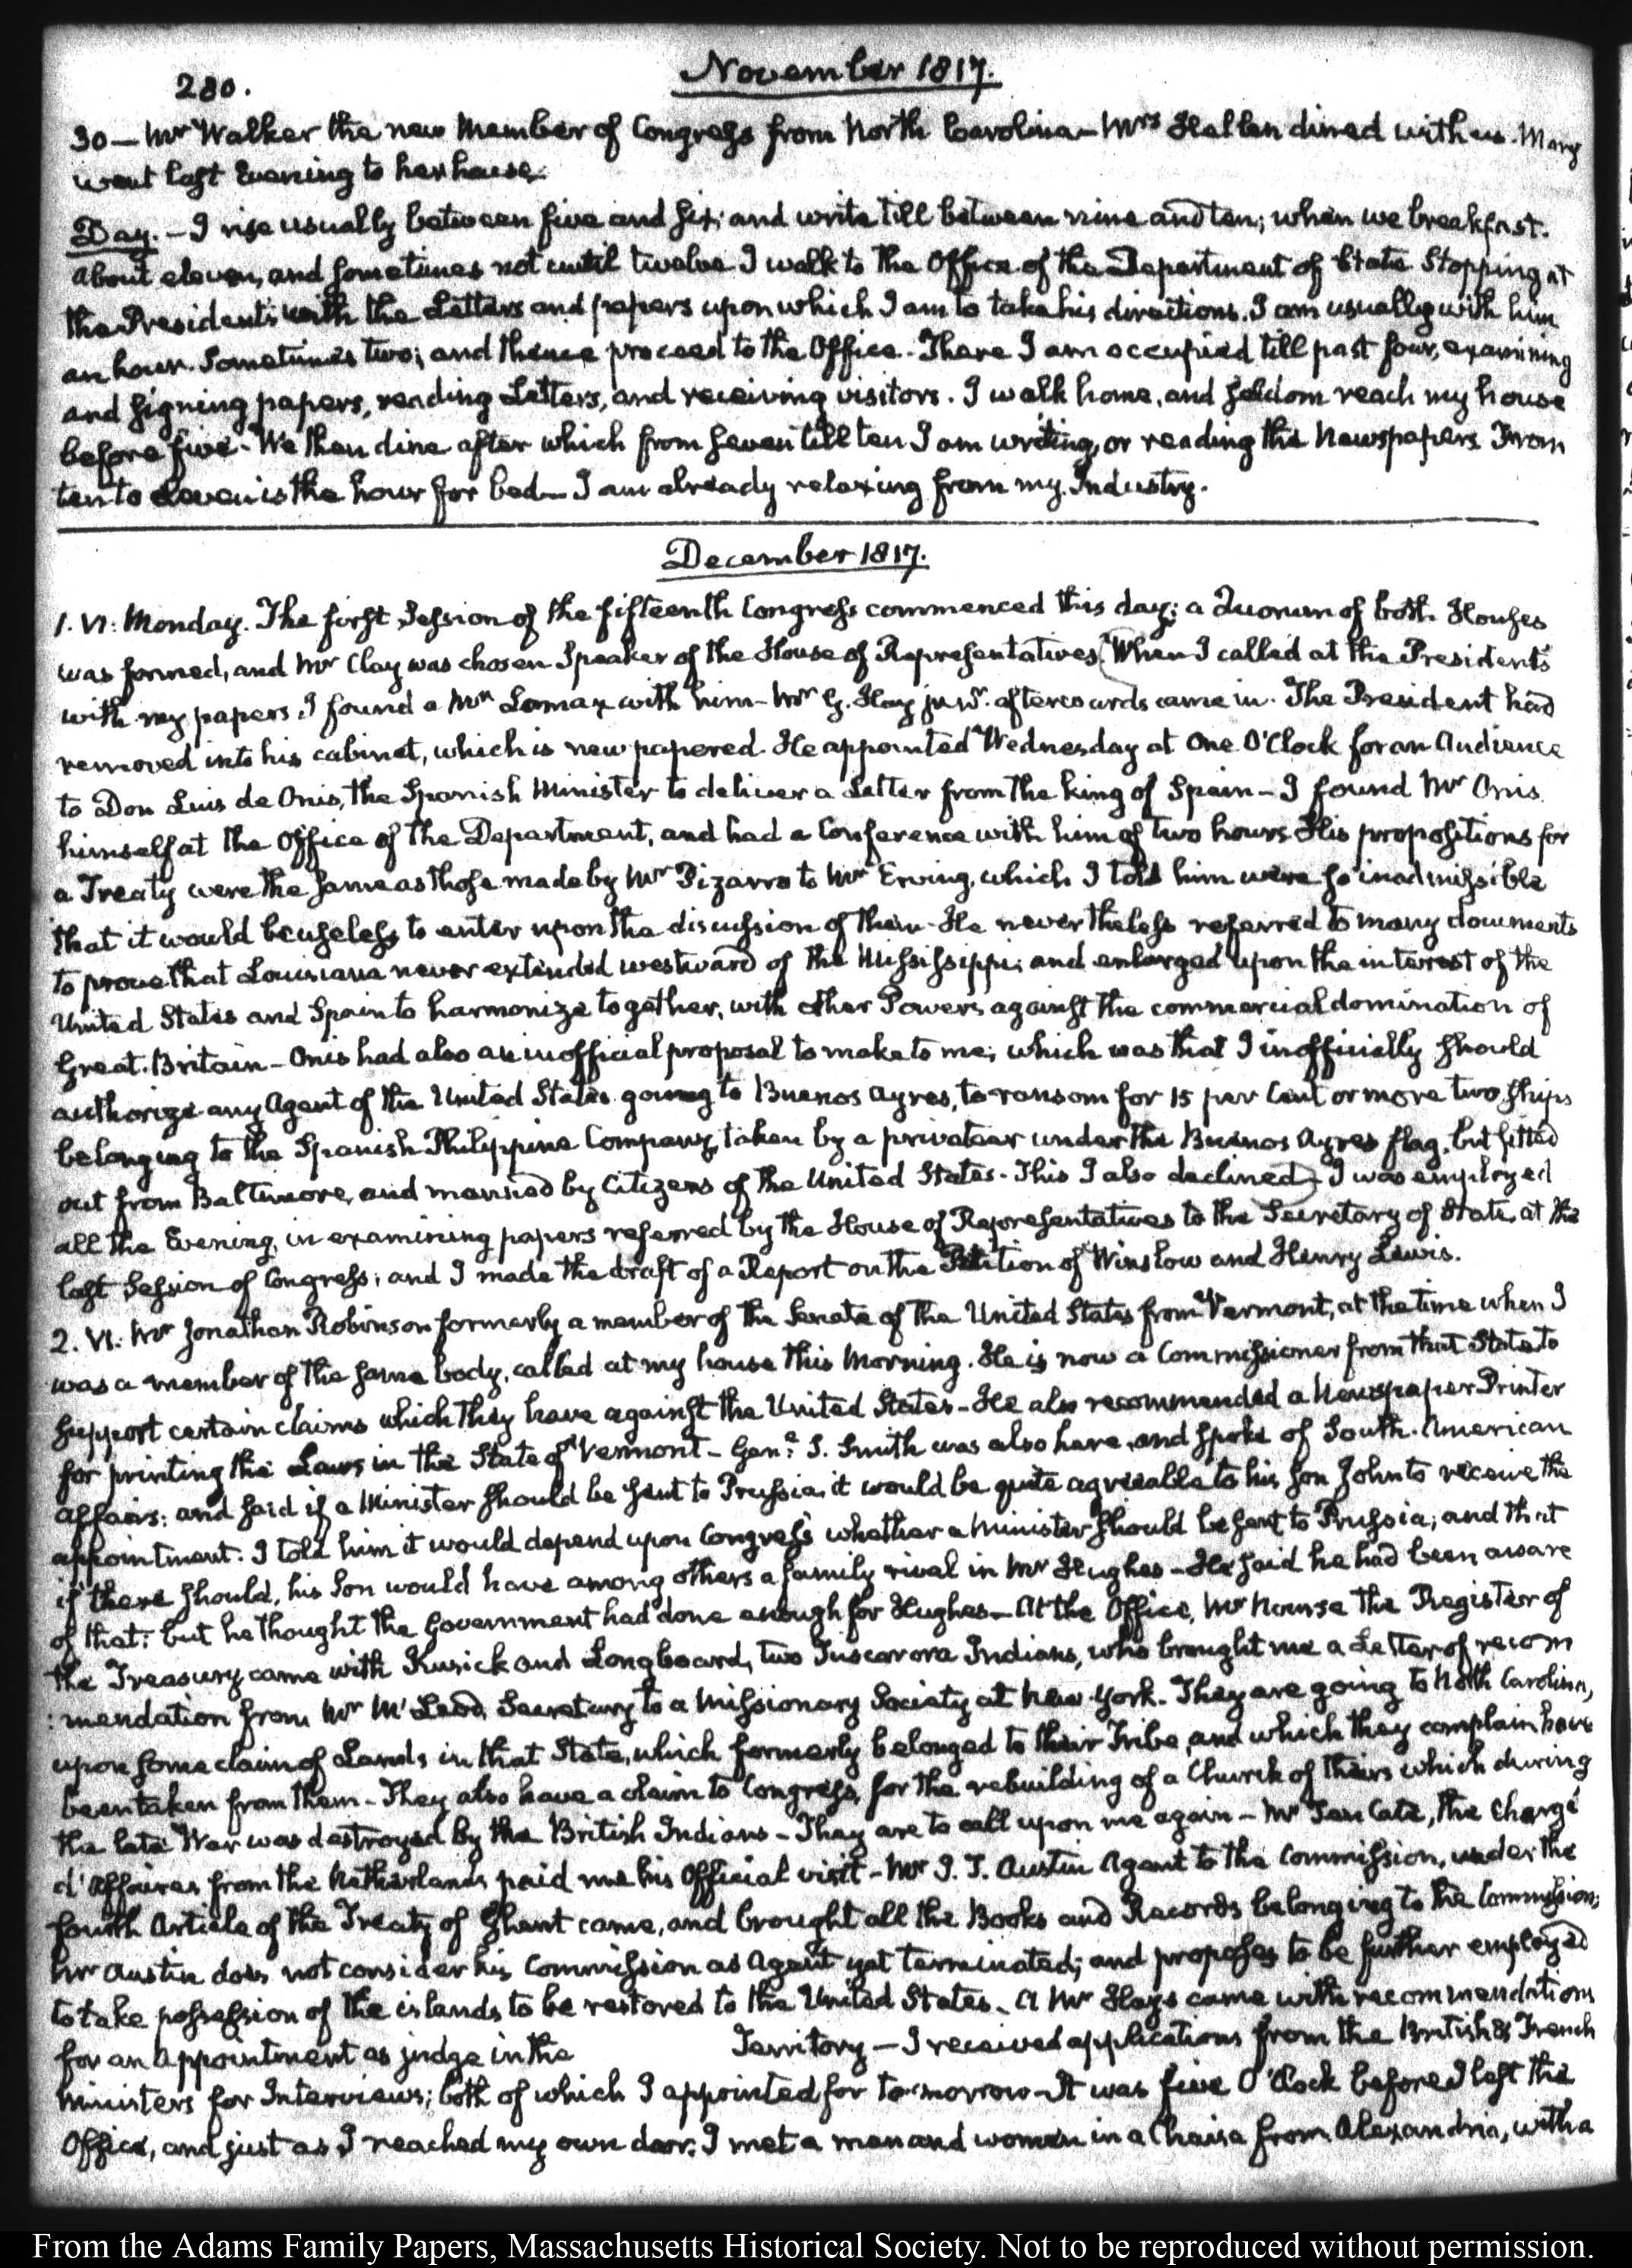 280.
November 1817.
30 — Mr Walker the new Member of Congress from North Carolina — Mrs Hellen dined with us. Mary
went last Evening to her house.
Day. — I rise usually between five and six; and write till between nine and ten; when we breakfast.
About eleven, and sometimes not until twelve I walk to the Office of the Department of State Stopping at
the President's with the Letters and papers upon which I am to take his directions. I am usually with him
an hour. Sometimes two; and thence proceed to the Office. There I am occupied till past four, examining
and signing papers, reading Letters, and receiving visitors. I walk home, and seldom reach my house
before five. We then dine after which from seven till ten I am writing, or reading the Newspapers. From
ten to eleven is the hour for bed — I am already relaxing from my Industry.
December 1817.
1. VI: Monday. The first Session of the fifteenth Congress commenced this day; a Quorum of both Houses
was formed, and Mr Clay was chosen Speaker of the House of Representatives. When I called at the President's
with my papers, I found a Mr Lomax with him — Mr G. Hay junr. afterwards came in. The President had
removed into his cabinet, which is new papered. He appointed Wednesday at One O'Clock for an Audience
to Don Luis de Onis, the Spanish Minister to deliver a Letter from the King of Spain — I found Mr Onis
himself at the Office of the Department, and had a Conference with him of two hours. His propositions for
a Treaty were the same as those made by Mr Pizarro to Mr Erving, which I told him were so inadmissible
that it would be useless to enter upon the discussion of them. He nevertheless referred to many documents
to prove that Louisiana never extended westward of the Mississippi; and enlarged upon the interest of the
United States and Spain to harmonize together, with other Powers against the commercial domination of
Great-Britain — Onis had also an inofficial proposal to make to me; which was that I inofficially should
authorize any Agent of the United States going to Buenos Ayres, to ransom for 15 per Cent or more two ships
belonging to the Spanish Philippine Company, taken by a privateer under the Buenos Ayres flag, but fitted
out from Baltimore, and manned by Citizens of the United States. This I also declined — I was employed
all the Evening, in examining papers referred by the House of Representatives to the Secretary of State, at the
last Session of Congress; and I made the draft of a Report on the Petition of Winslow and Henry Lewis.
2. VI. Mr Jonathan Robinson formerly a member of the Senate of the United States from Vermont, at the time when I
was a member of the same body, called at my house this Morning. He is now a Commissioner from that State to
support certain claims which they have against the United States — He also recommended a Newspaper Printer
for printing the Laws in the State of Vermont — Genl. S. Smith was also here, and spoke of South-American
affairs: and said if a Minister should be sent to Prussia, it would be quite agreeable to his Son John to receive the
appointment. I told him it would depend upon Congress whether a Minister should be sent to Prussia; and that
if there should, his Son would have among others a family rival in Mr Hughes — He said he had been aware
of that: but he thought the Government had done enough for Hughes — At the Office, Mr Nourse the Register of
the Treasury came with Kusick and Longboard, two Tuscarora Indians, who brought me a Letter of recom
:mendation from Mr McLeod, Secretary to a Missionary Society at New-York. They are going to North Carolina,
upon some claim of Lands in that State, which formerly belonged to their Tribe, and which they complain have
been taken from them — They also have a claim to Congress, for the rebuilding of a Church of theirs which during
the late War was destroyed by the British Indians — They are to call upon me again — Mr Ten Cate, the Chargé
d'Affaires from the Netherlands paid me his Official visit — Mr J. T. Austin Agent to the Commission, under the
fourth Article of the Treaty of Ghent came, and brought all the Books and Records belonging to the Commission;
Mr Austin does not consider his Commission as Agent yet terminated; and proposes to be further employed
to take possession of the islands to be restored to the United States. A Mr Hays came with recommendations
for an Appointment as judge in the Territory — I received applications from the British & French
Ministers for Interviews; both of which I appointed for to-morrow — It was five O'Clock before I left the
Office, and just as I reached my own door, I met a man and woman in a Chaise from Alexandria, with a
From the Adams Family Papers, Massachusetts Historical Society. Not to be reproduced without permission.